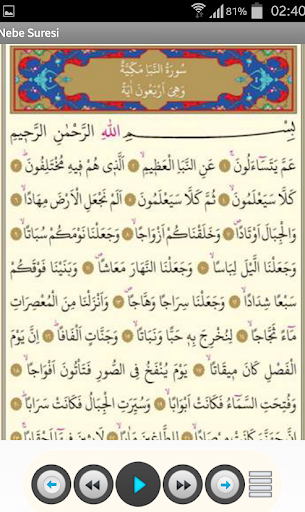 81% 02:40
Nebe Suresi
سُورَةُ النَّبَأِ مَكِّيَّةٌ
وَهِيَ اَرْبَعُونَ اٰيَةً
بِسْــــمِ اللّٰهِ الرَّحْمٰنِ الرَّحِيمِ
عَمَّ يَتَسَٓاءَلُونَۚ ﴿١﴾ عَنِ النَّبَأِ الْعَظٖيمِۙ ﴿٢﴾ اَلَّذٖي هُمْ فٖيهِ مُخْتَلِفُونَۜ ﴿٣﴾
كَلَّا سَيَعْلَمُونَۙ ﴿٤﴾ ثُمَّ كَلَّا سَيَعْلَمُونَ ﴿٥﴾ اَلَمْ نَجْعَلِ الْاَرْضَ مِهَادًاۙ ﴿٦﴾
وَالْجِبَالَ اَوْتَادًاۖ ﴿٧﴾ وَخَلَقْنَاكُمْ اَزْوَاجًاۙ ﴿٨﴾ وَجَعَلْنَا نَوْمَكُمْ سُبَاتًاۙ ﴿٩﴾
وَجَعَلْنَا الَّيْلَ لِبَاسًاۙ ﴿١٠﴾ وَجَعَلْنَا النَّهَارَ مَعَاشًاۖ ﴿١١﴾ وَبَنَيْنَا فَوْقَكُمْ
سَبْعًا شِدَادًاۙ ﴿١٢﴾ وَجَعَلْنَا سِرَاجًا وَهَّاجًاۖ ﴿١٣﴾ وَاَنْزَلْنَا مِنَ الْمُعْصِرَاتِ
مَٓاءً ثَجَّاجًاۙ ﴿١٤﴾ لِنُخْرِجَ بِهٖ حَبًّا وَنَبَاتًاۙ ﴿١٥﴾ وَجَنَّاتٍ اَلْفَافًاۜ ﴿١٦﴾ اِنَّ يَوْمَ
الْفَصْلِ كَانَ مٖيقَاتًاۙ ﴿١٧﴾ يَوْمَ يُنْفَخُ فِي الصُّورِ فَتَأْتُونَ اَفْوَاجًاۙ ﴿١٨﴾
وَفُتِحَتِ السَّمَٓاءُ فَكَانَتْ اَبْوَابًاۙ ﴿١٩﴾ وَسُيِّرَتِ الْجِبَالُ فَكَانَتْ سَرَابًاۜ ﴿٢٠﴾
اِنَّ جَهَنَّمَ كَانَتْ مِرْصَادًاۙ ﴿٢١﴾ لِلطَّاغٖينَ مَاٰبًاۙ ﴿٢٢﴾ لَابِثٖينَ فٖيهَٓا اَحْقَابًاۚ